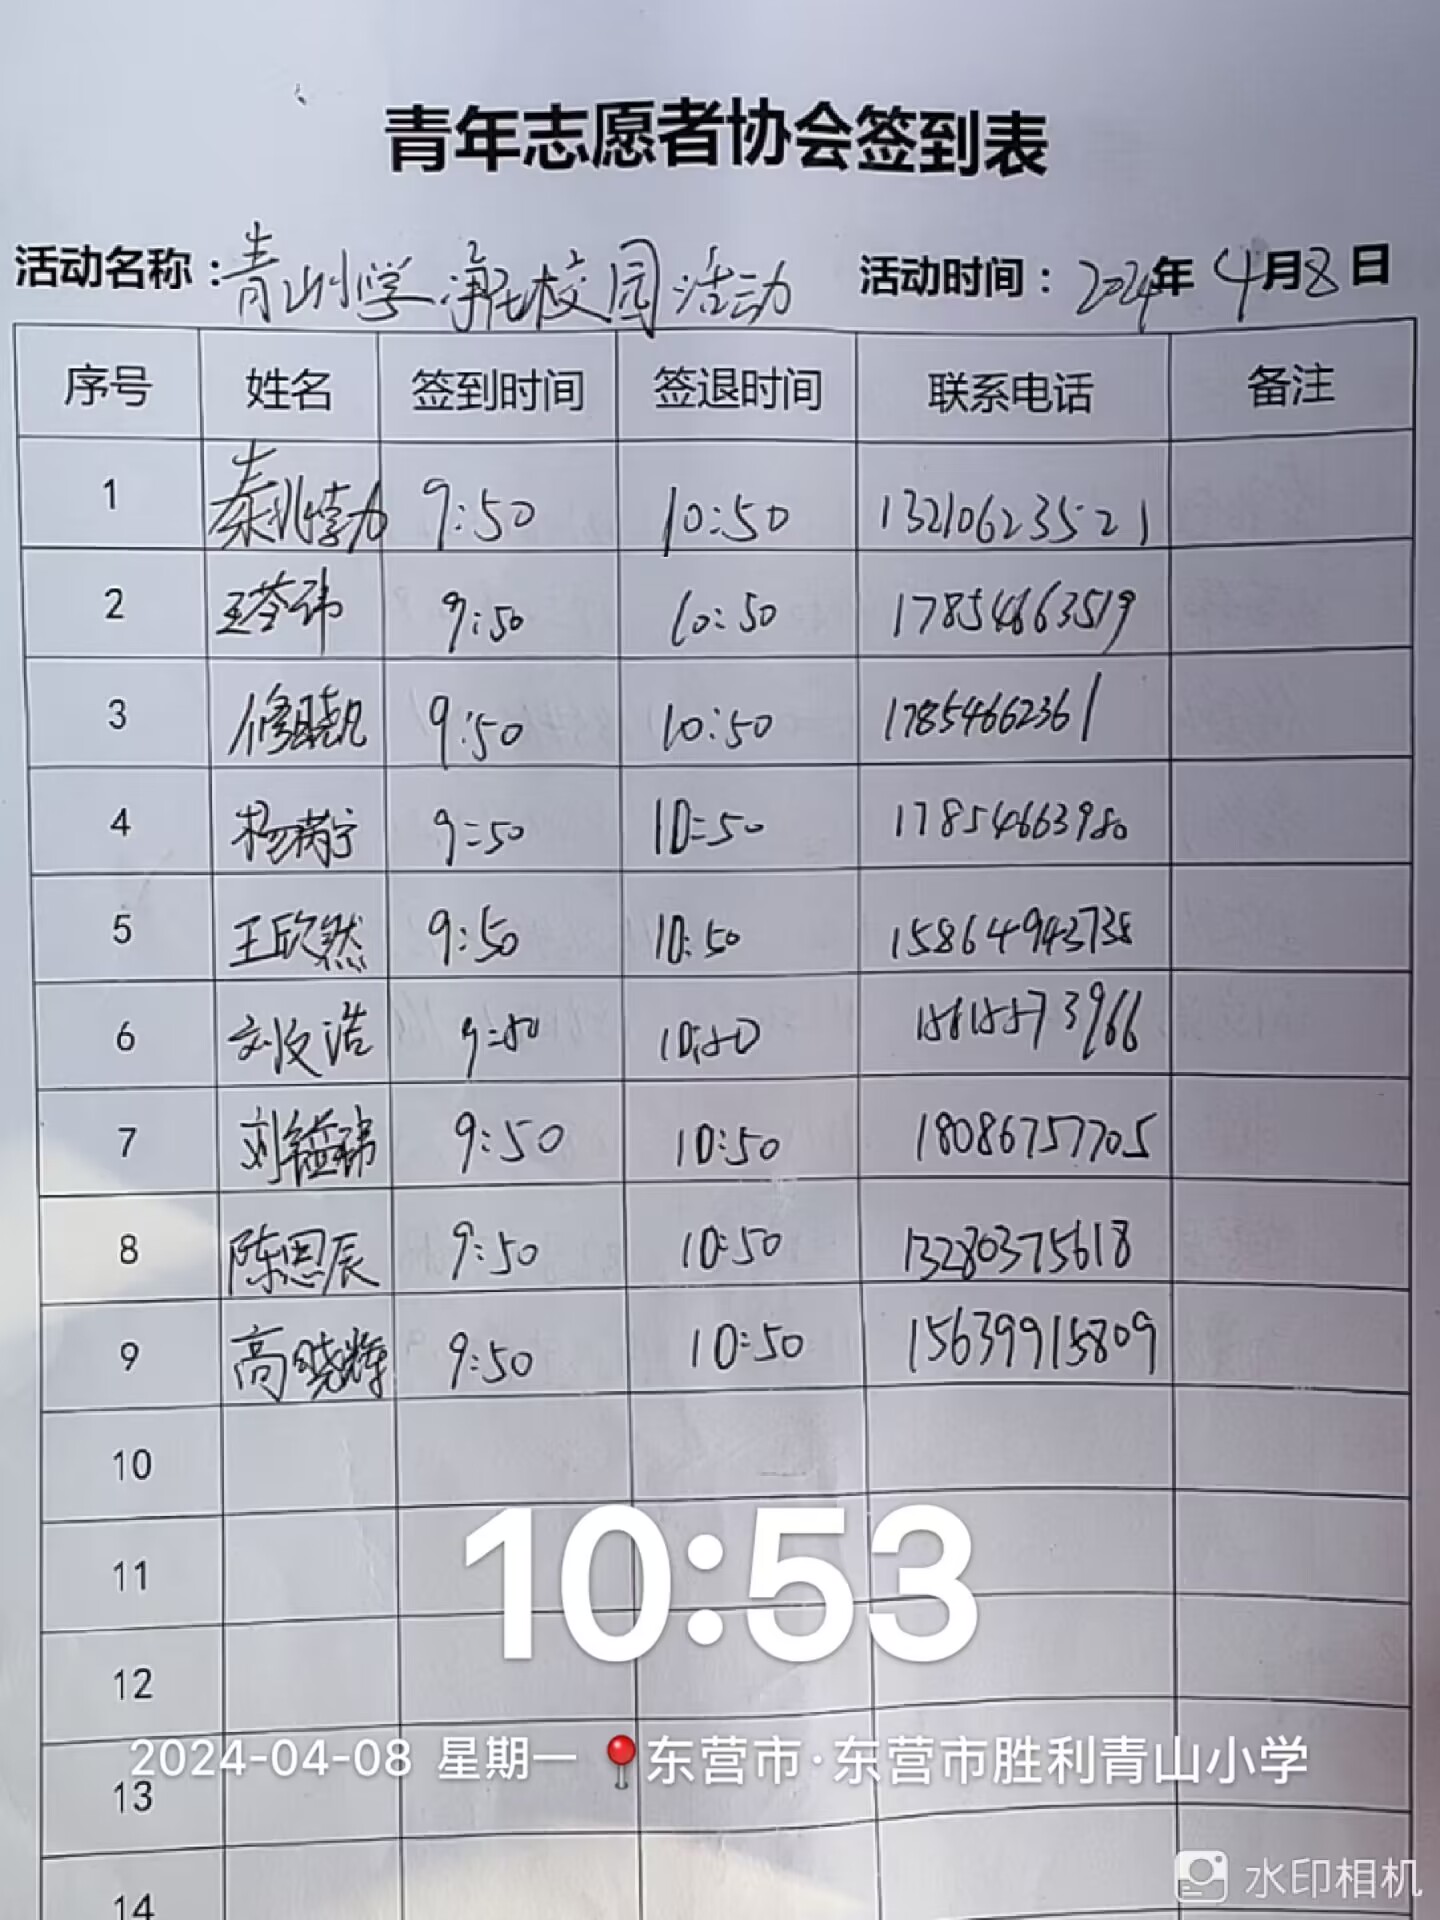 青年志愿者协会签到表
活动名称：青山小学净化校园活动 活动时间：2024年4月8日
序号 姓名 签到时间 签退时间 联系电话 备注
1 秦兆勃 9:50 10:50 13210623521
2 王苓玮 9:50 10:50 17854663519
3 修晓凯 9:50 10:50 17854662361
4 杨 宁 9:50 10:50 17854663980
5 王欣然 9:50 10:50 15864943738
6 刘汶浩 9:50 10:50 15615573966
7 刘镒玮 9:50 10:50 18086757705
8 陈思辰 9:50 10:50 13280375618
9 高晓辉 9:50 10:50 15639915809
10
11
10:53
12
2024-04-08 星期一 东营市·东营市胜利青山小学
13
14
水印相机